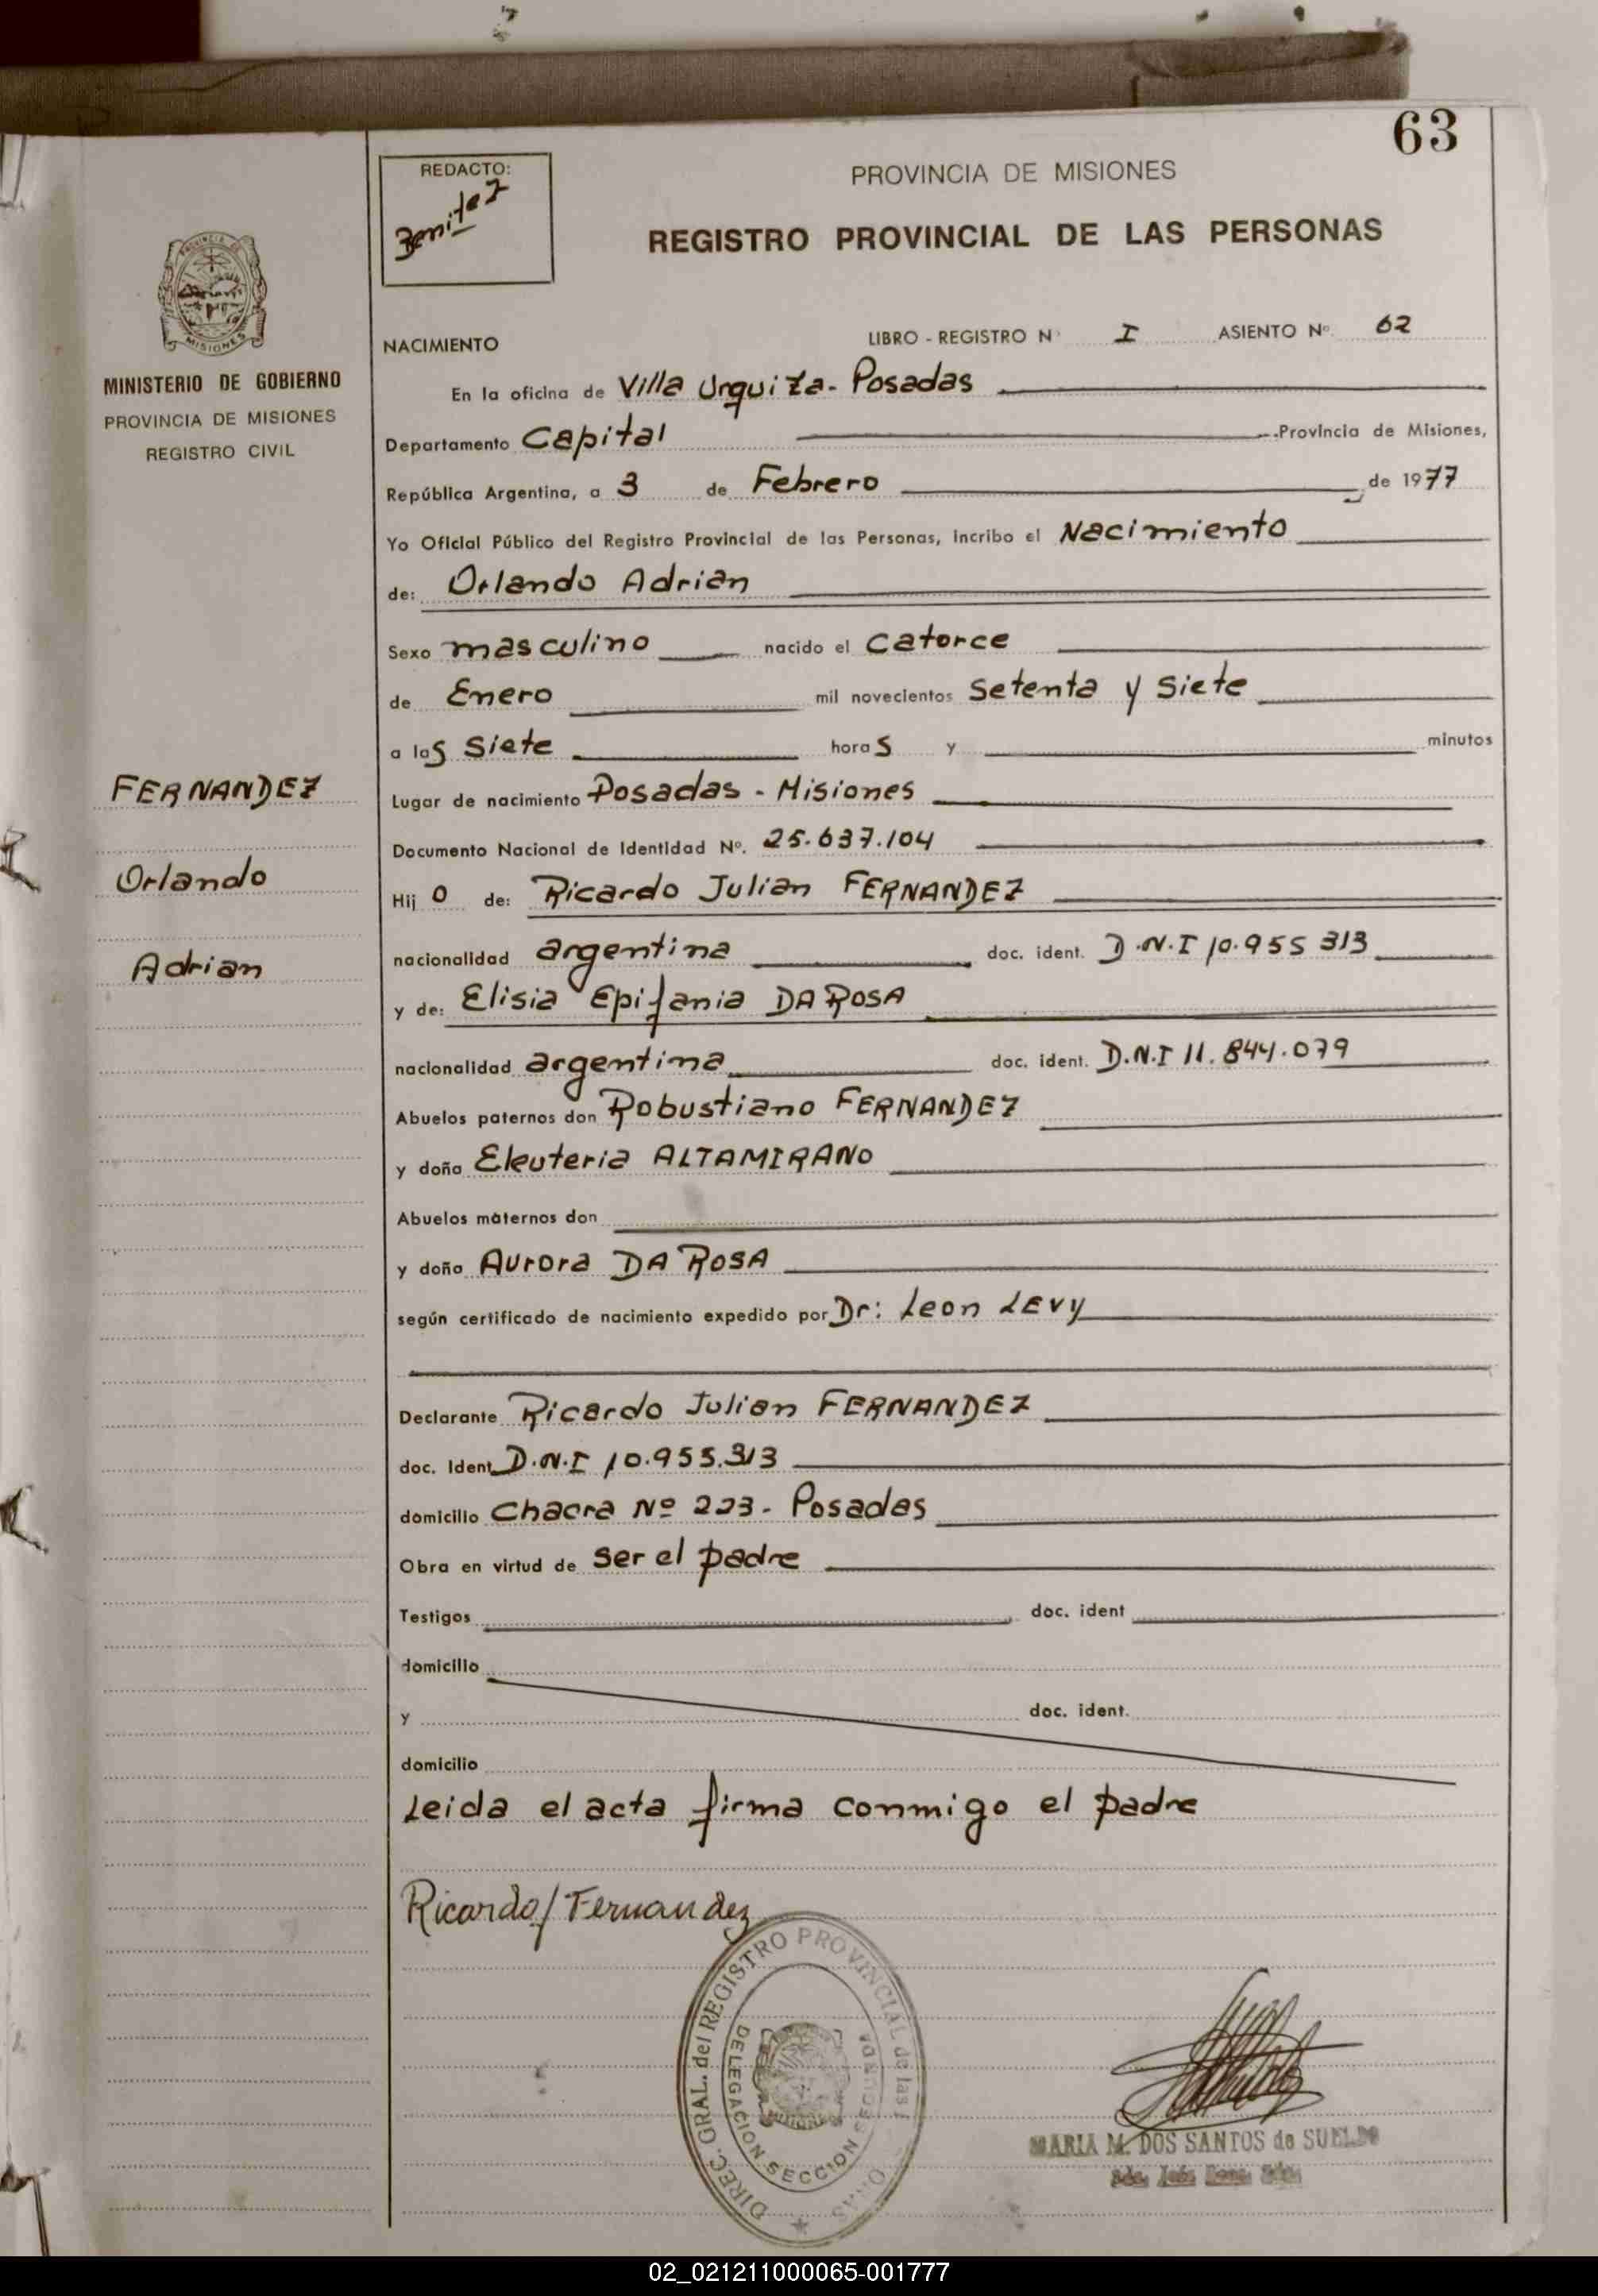 63
REDACTO:
Benitez
PROVINCIA DE MISIONES
REGISTRO PROVINCIAL DE LAS PERSONAS
PROVINCIA DE
MISIONES
MINISTERIO DE GOBIERNO
PROVINCIA DE MISIONES
REGISTRO CIVIL
FERNANDEZ
Orlando
Adrian
NACIMIENTO LIBRO - REGISTRO Nº I ASIENTO Nº 62
En la oficina de Villa Urquiza - Posadas
Departamento Capital Provincia de Misiones,
República Argentina, a 3 de Febrero de 1977
Yo Oficial Público del Registro Provincial de las Personas, incribo el Nacimiento
de: Orlando Adrian
Sexo masculino nacido el catorce
de Enero mil novecientos setenta y siete
a las siete horas y minutos
Lugar de nacimiento Posadas - Misiones
Documento Nacional de Identidad Nº. 25.637.104
Hijo de: Ricardo Julian FERNANDEZ
nacionalidad argentina doc. ident. D.N.I 10.955 313
y de: Elisia Epifania DA ROSA
nacionalidad argentina doc. ident. D.N.I 11.844.079
Abuelos paternos don Robustiano FERNANDEZ
y doña Eleuteria ALTAMIRANO
Abuelos maternos don
y doña Aurora DA ROSA
según certificado de nacimiento expedido por Dr: Leon LEVY
Declarante Ricardo Julian FERNANDEZ
doc. Ident D.N.I 10.955.313
domicilio Chacra Nº 223 - Posadas
Obra en virtud de ser el padre
Testigos doc. ident
domicilio
y doc. ident.
domicilio
Leida el acta firma conmigo el padre
Ricardo J Fernandez
DIREC. GRAL. del REGISTRO PROVINCIAL de las
DELEGACION SECCION SEGUNDA
MARIA M. DOS SANTOS de SUELDO
02_021211000065-001777